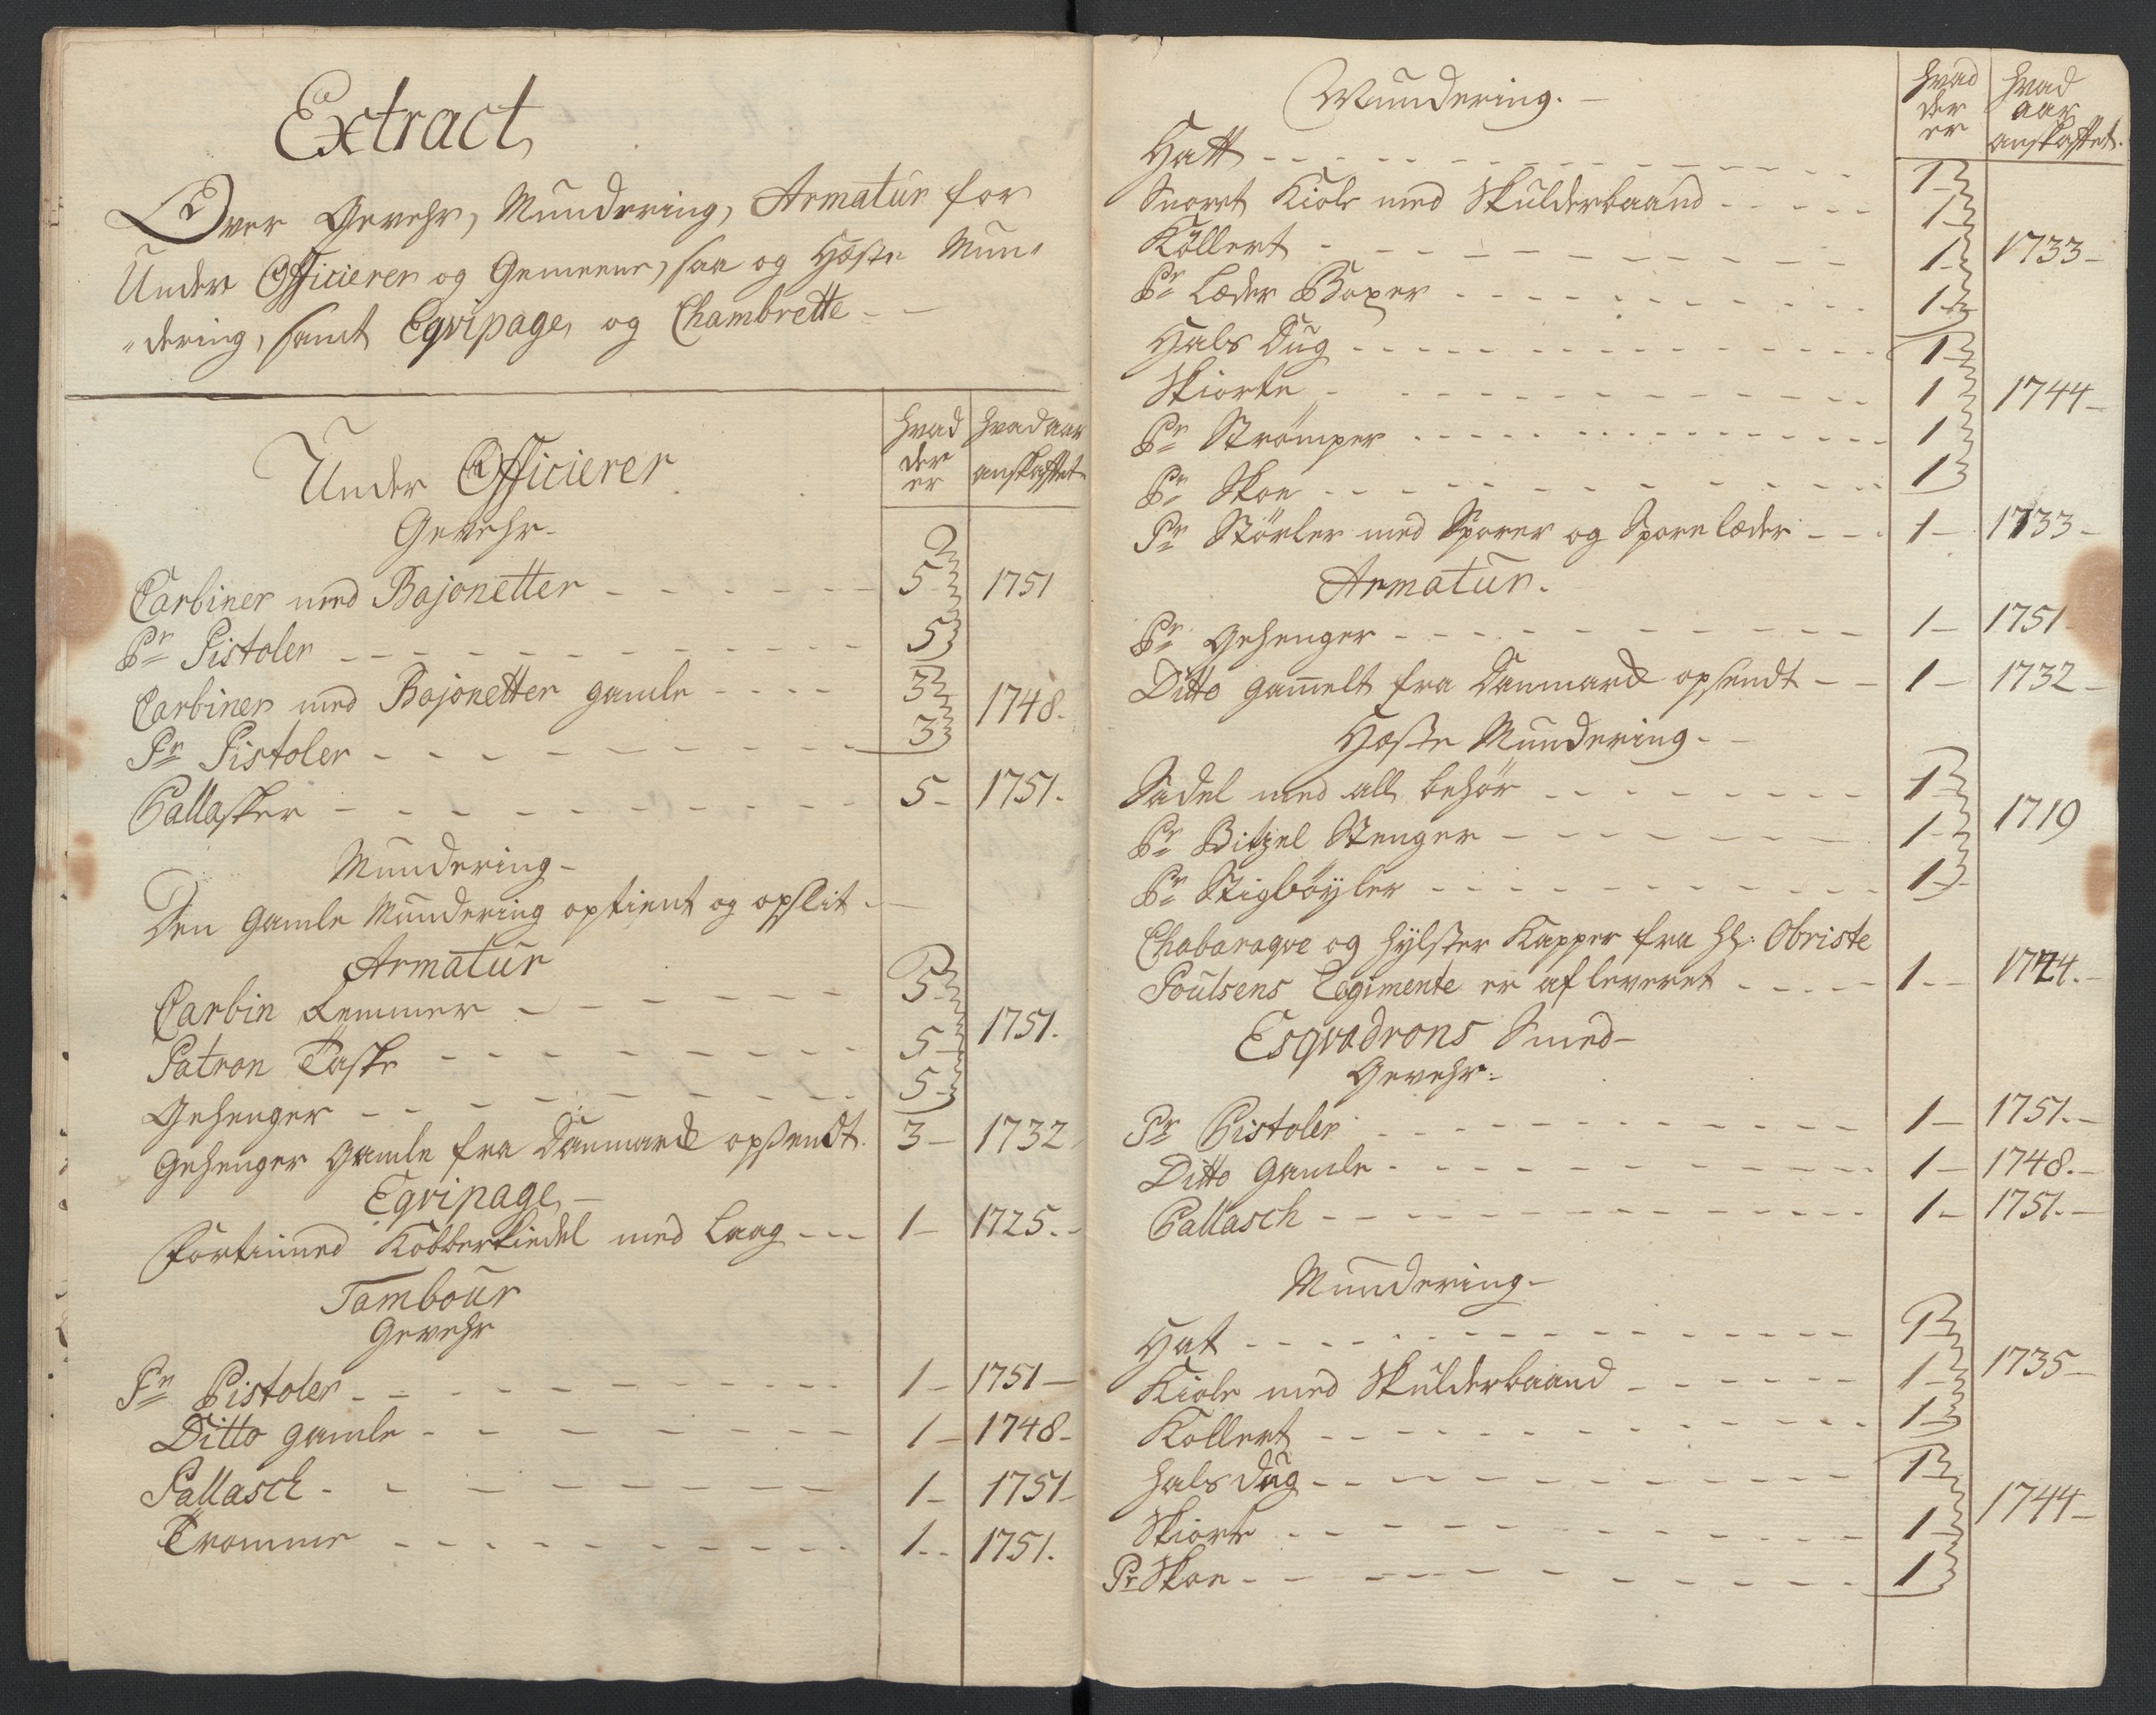 Extract
Over Gevehr, Mundering, Armatur for
Under Officierer og Gemeene, saa og Hæste Mun-
dering, samt Eqvipage, og Chambrette
hvad der er
hvad aar anskaffet
Under Officierer
Gevehr
Carbiner med Bajonetter 5 1751
Pr Pistoler 5
Carbiner med Bajonetter gamle 3 1748.
Pr Pistoler 3
Pallasker 5 1751.
Mundering
Den gamle Mundering optient og opslit
Armatur
Carbin Remmer 5
Patron Taske 5 1751.
Gehenger 5
Gehenger gamle fra Danmark opsendt 3 1732
Eqvipage
Fortinned Kobberkiedel med Laag 1 1725.
Tambour
Gevehr
Pr Pistoler 1 1751
Ditto gamle 1 1748
Pallasch 1 1751
Tromme 1 1751.
hvad der er
hvad aar anskaffet.
Mundering.
Hatt 1
Snoret Kiole med Skulderbaand 1
Kollert 1 1733
Pr Læder Boxer 1
Hals Dug 1
Skiorte 1 1744
Pr Strømper 1
Pr Skoe 1
Pr Støvler med Sporer og Sporelæder 1 1733
Armatur.
Pr Gehenger 1 1751
Ditto gam̄elt fra Danmark opsendt 1 1732
Hæste Mundering.
Sadel med all behør 1
Pr Bitzel Stenger 1 1719
Pr Stigbøyler 1
Chabaraqve og Hylster Kapper fra Hr: Obriste
Poulsens Regimente er afleveret 1 1744.
Esqvadrons Smed
Gevehr
Pr Pistoler 1 1751.
Ditto gamle 1 1748.
Pallasch 1 1751.
Mundering
Hat 1
Kiole med Skulderbaand 1 1735
Kollert 1
hals dug 1
Skiorte 1 1744
Pr Skoe 1